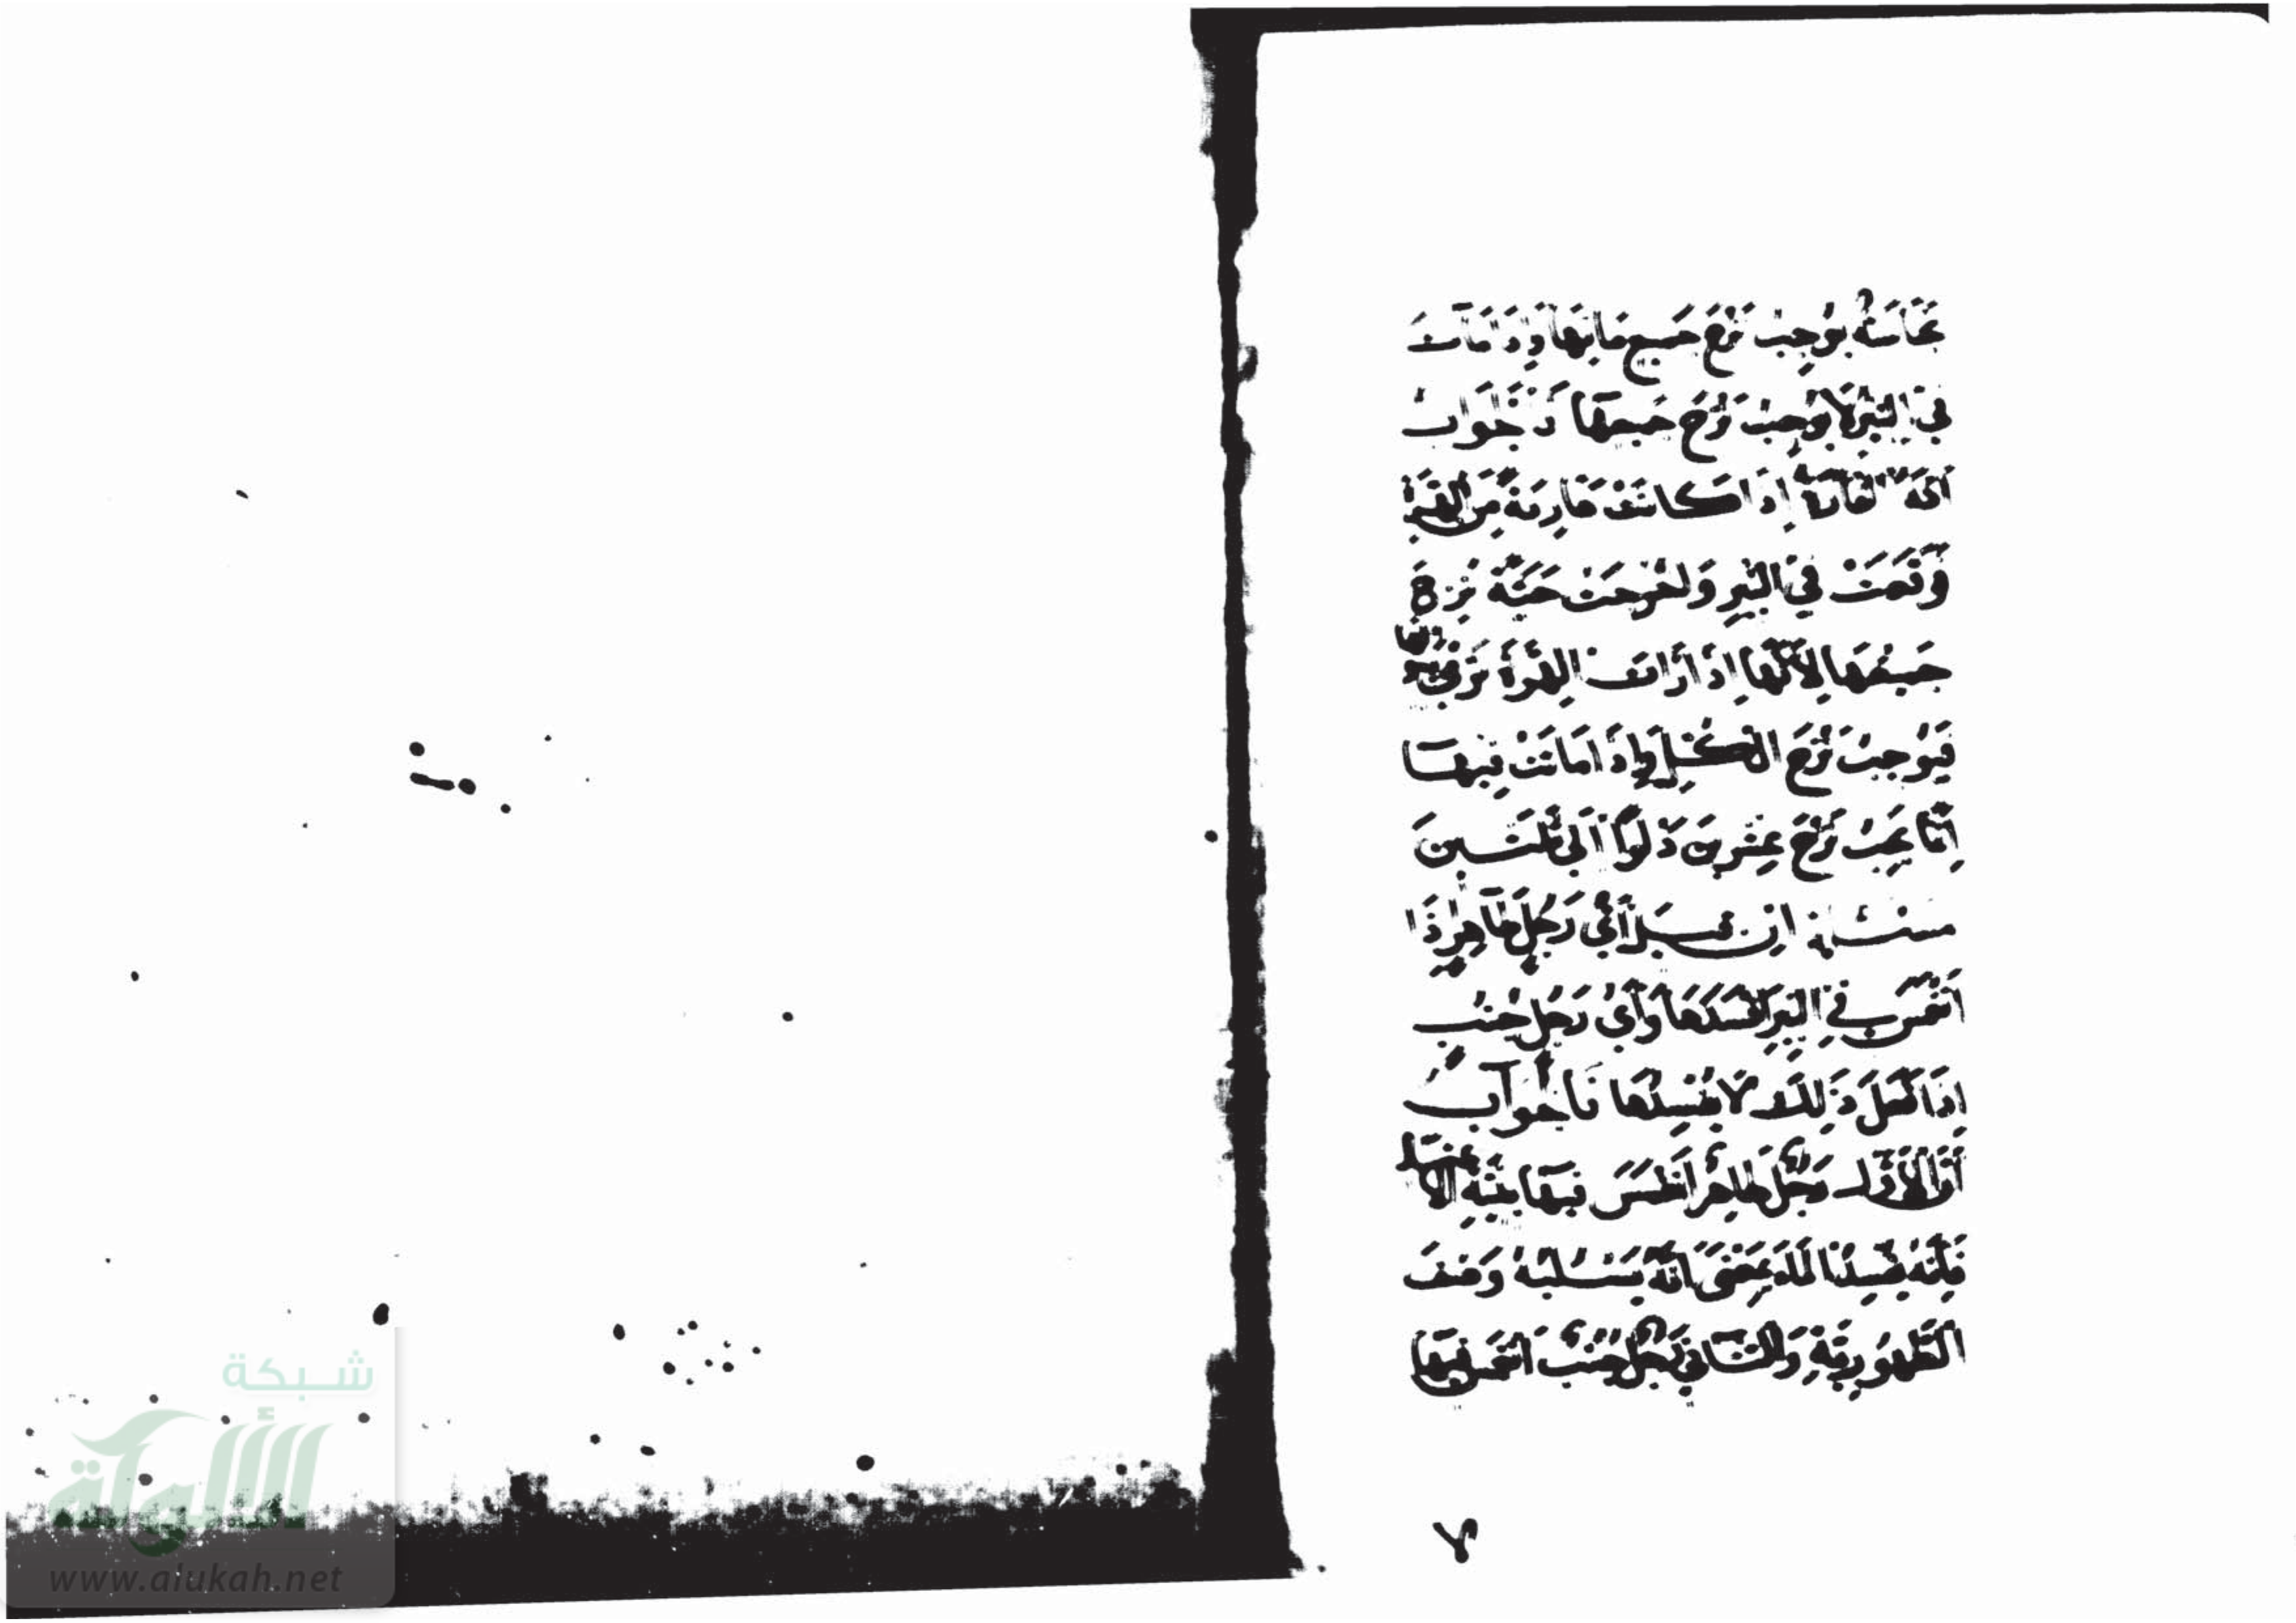 نَجَاسَةٌ يُوجِبُ نَزْحَ جَمِيعِ مَائِهَا وَإِذَا مَاتَ
فِي الْبِئْرِ لَا يُوجِبُ نَزْحَ جَمِيعِهَا فَالْجَوَابُ
الْفَارَةُ إِذَا كَانَتْ هَارِبَةً مِنَ الْهِرَّةِ
وَقَعَتْ فِي الْبِئْرِ وَأُخْرِجَتْ حَيَّةً نُزِحَ
جَمِيعُهَا لِأَنَّهَا إِذَا رَأَتْ الْهِرَّةَ
فَيُوجِبُ نَزْحَ الْكُلِّ وَإِذَا مَاتَتْ فِيهَا
إِنَّمَا يَجِبُ نَزْحُ عِشْرِينَ دَلْوًا إِلَى ثَلَثِينَ
مسئلة إِنْ قِيلَ أَيُّ رَجُلٍ طَاهِرٍ إِذَا
انْغَمَسَ فِي الْبِئْرِ أَفْسَدَهَا وَأَيُّ رَجُلٍ جُنُبٍ
إِذَا فَعَلَ ذَلِكَ لَا يُفْسِدُهَا فَالْجَوَابُ
أَنَّ الْأَوَّلَ رَجُلٌ طَاهِرٌ انْغَمَسَ فِيهَا بِنِيَّةِ الاغتسال
فَإِنَّهُ يُفْسِدُ الْمَاءَ بِمَعْنَى أَنَّهُ يَسْلُبُهُ وَصْفَ
الطَّهُورِيَّةِ وَالثَّانِي رَجُلٌ جُنُبٌ انْغَمَسَ فِيهَا
شبكة
الألوكة
www.alukah.net